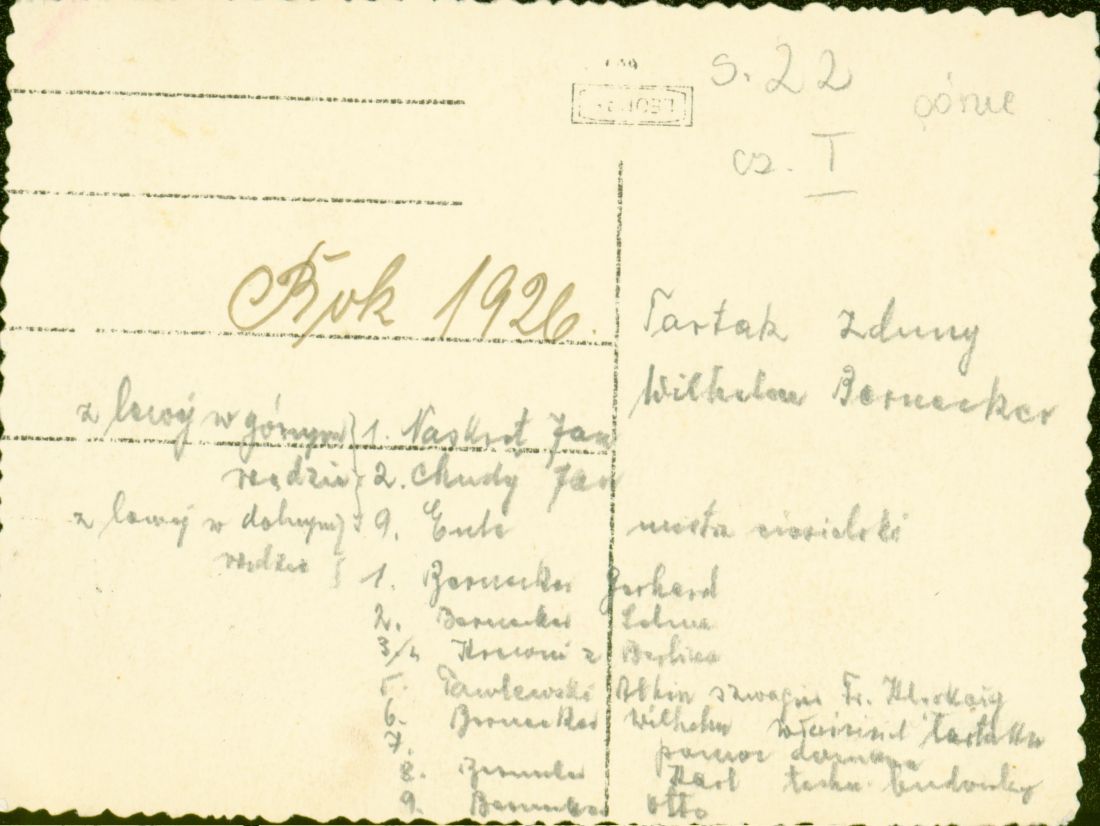 s. 22 górne
cz. I
Rok 1926.
Tartak Zduny
Wilhelm Bernecker
z lewej w górnym 1. Naskręt Jan
rzędzie 2. Chudy Jan
z lewej w dolnym 9. mistrz ciesielski
rzędzie
1. Bernecker Gerhard
2. Bernecker
3/4 Krewni z Berlina
5. Pawlewski szwagier Fr.
6. Bernecker Wilhelm właściciel tartaku
7. pomoc domowa
8. Bernecker Karl techn. budowlany
9. Bernecker Otto